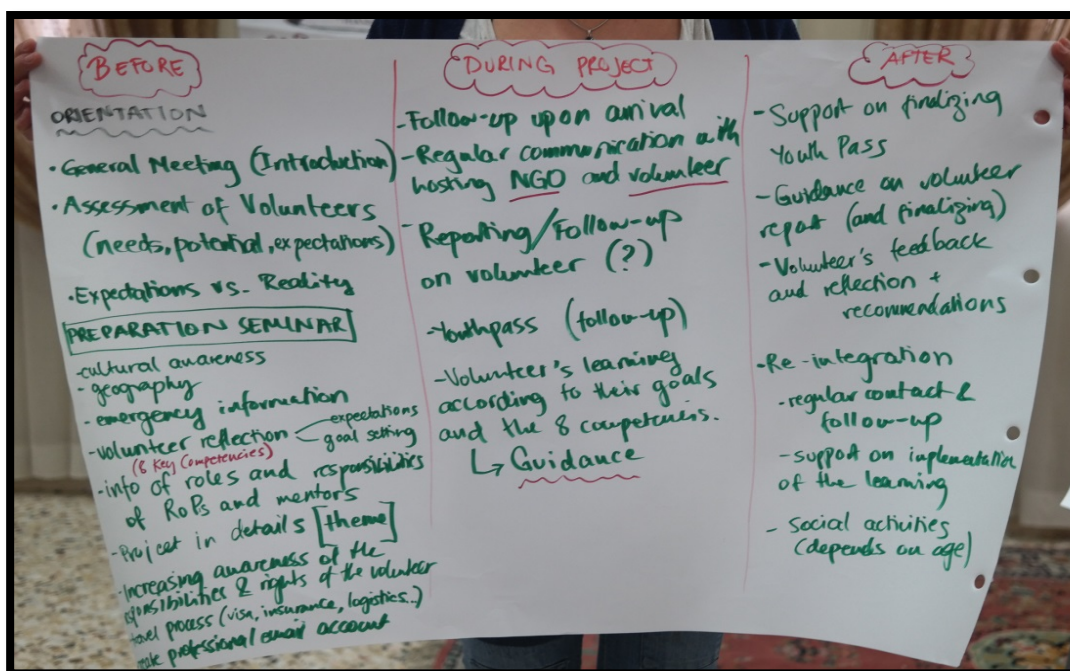 BEFORE
ORIENTATION
•General Meeting (Introduction)
•Assessment of Volunteers
(needs, potential, expectations)
•Expectations vs. Reality
PREPARATION SEMINAR
-cultural awareness
-geography
-emergency information
-volunteer reflection expectations
goal setting
(8 Key Competencies)
-info of roles and responsibilities
of RoPs and mentors
-Project in details [theme]
-Increasing awareness of the
responsibilities & rights of the volunteer
travel process (visa, insurance, logistics..)
professional email account
DURING PROJECT
-Follow-up upon arrival
-Regular communication with
hosting NGO and volunteer
-Reporting/Follow-up
on volunteer (?)
-Youthpass (follow-up)
-Volunteer's learning
according to their goals
and the 8 competencies.
↳ Guidance
AFTER
-Support on finalizing
Youth Pass
-Guidance on volunteer
report (and finalizing)
-Volunteer's feedback
and reflection +
recommendations
-Re-integration
-regular contact &
follow-up
-support on implementation
of the learning
-Social activities
(depends on age)